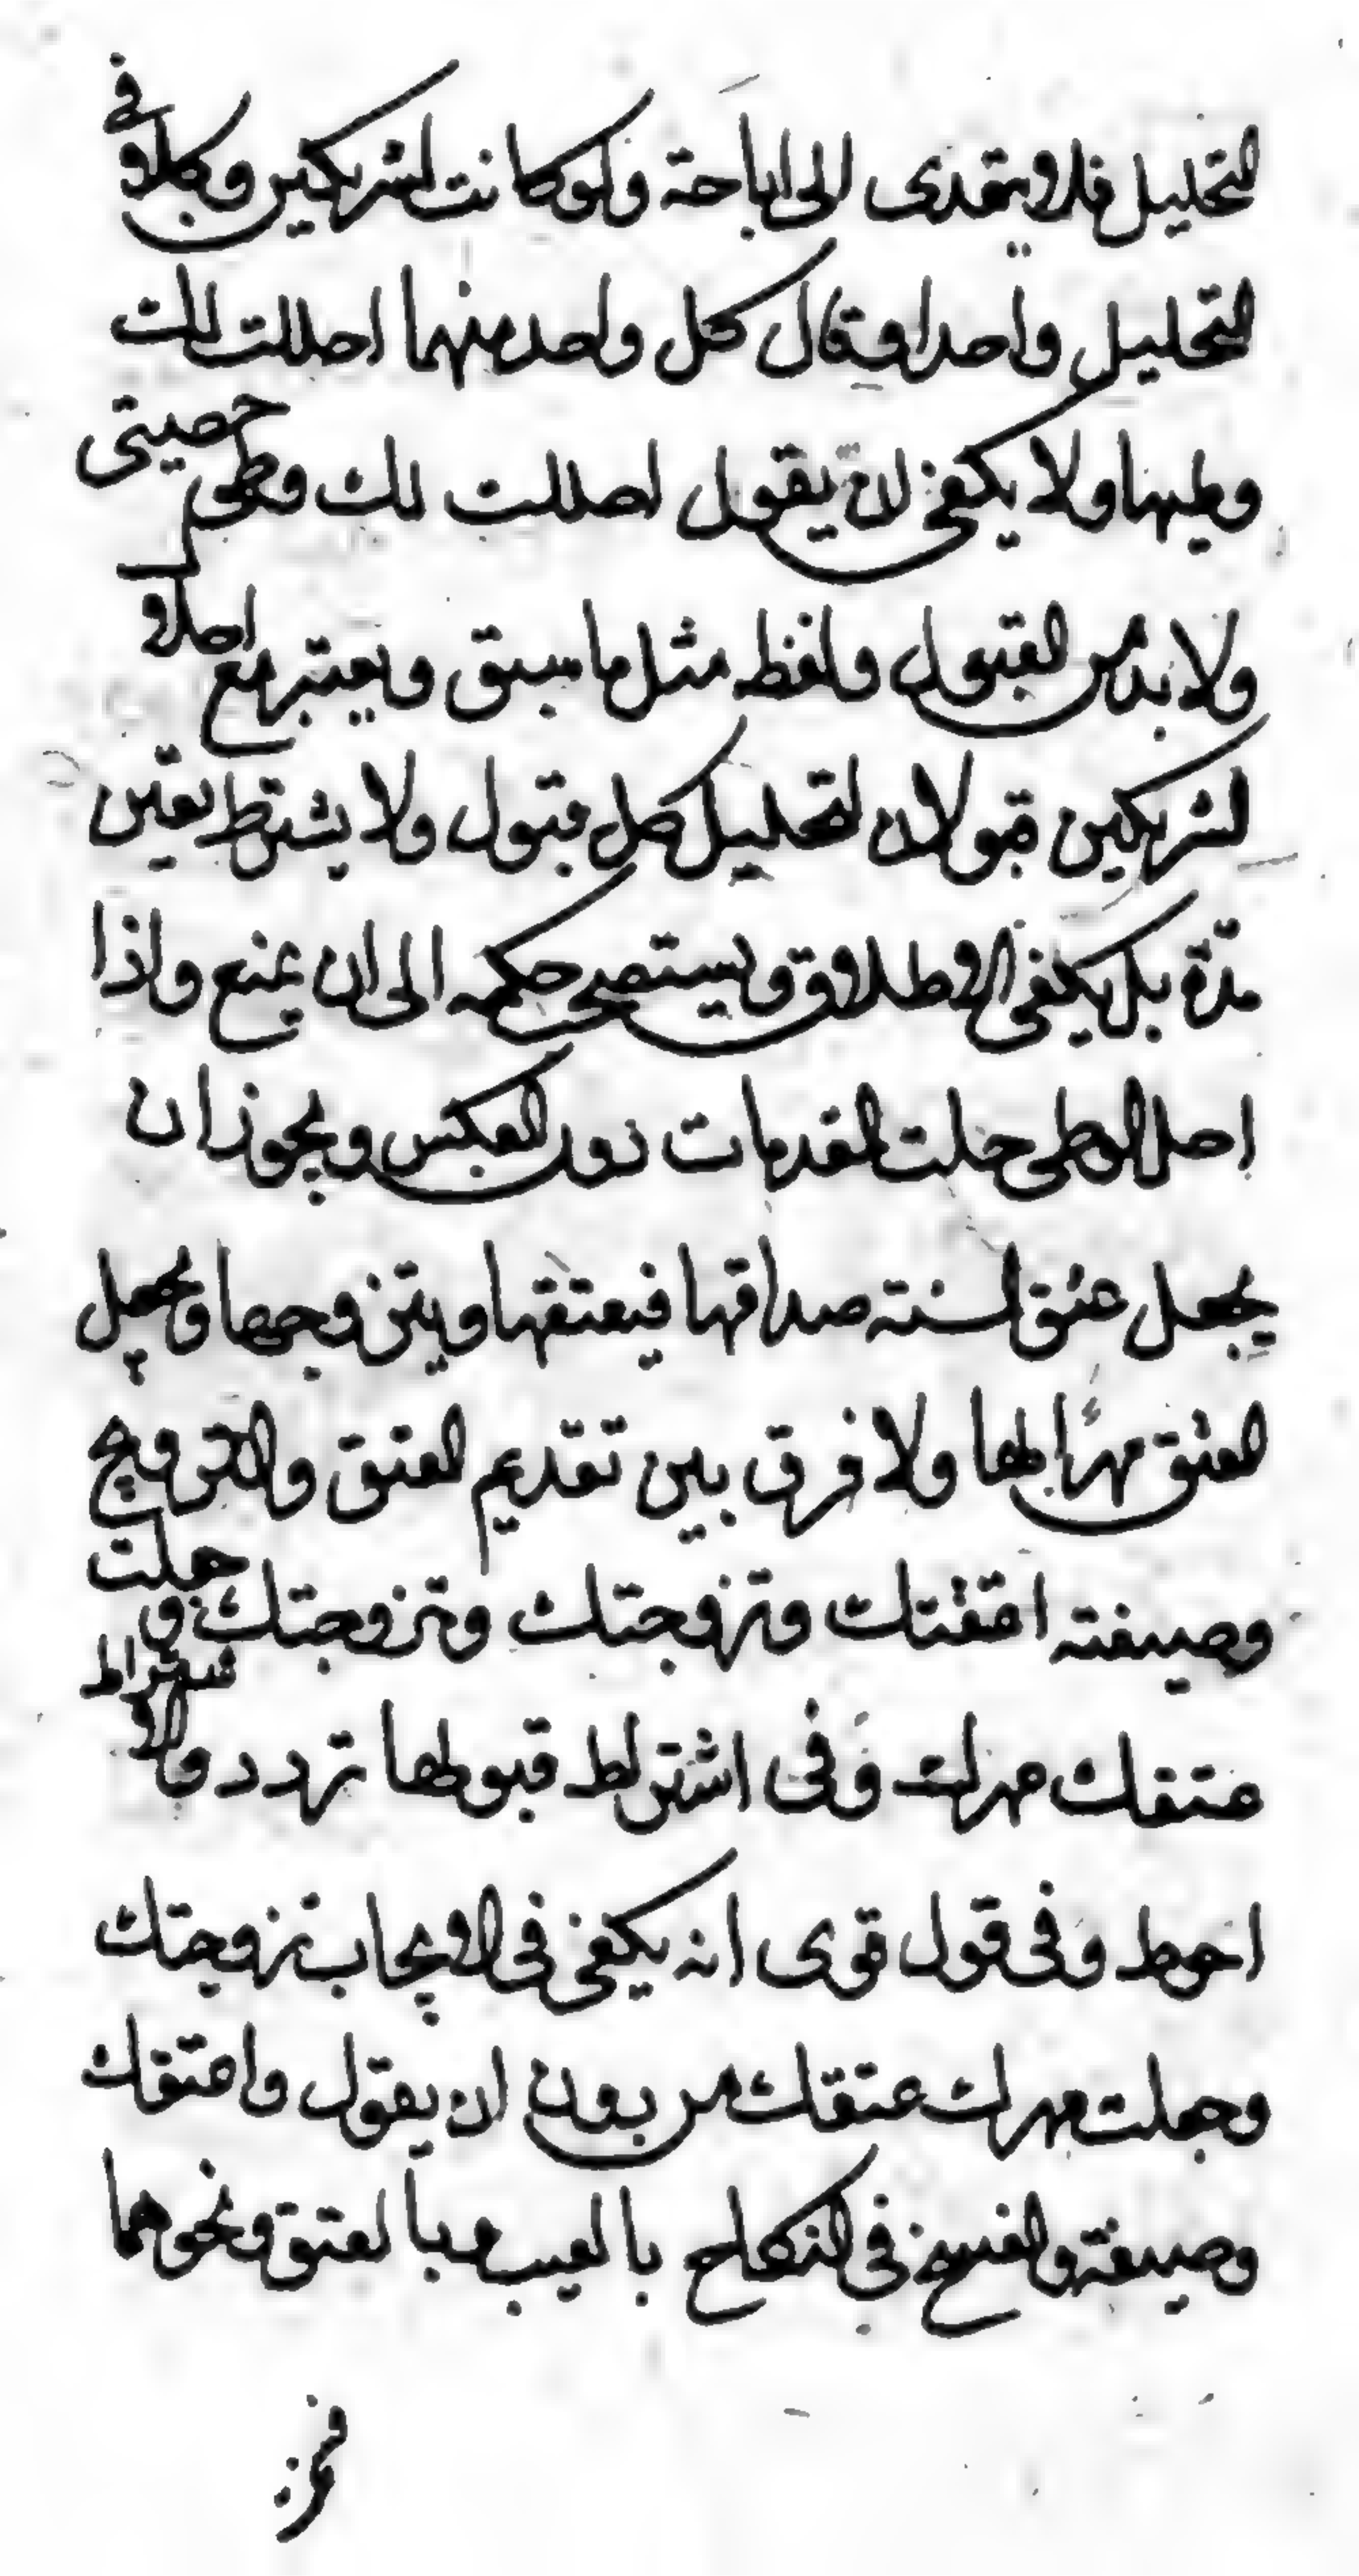 التحليل فلا يتعدى الى اباحة ولو كانت لشريكين وكلاو في
التحليل واحدا فقال كل واحد منهما احللت لك
وطيها ولا يكفي ان يقول احللت لك وطى حصيتى
ولا بد من القبول ولفظه مثل ما سبق ويعتبر مع احلاو
لشريكين قبولان لتحليل كل قبول ولا يشترط تعين
مدّة بل يكفى الاطلاق ويستصحب حكمه الى ان يمنع واذا
احل الوطى حلت المقدمات دون العكس ويجوز ان
يجعل عتق السنته صداقها فيعتقها ويتزوجها ويجعل
العتق مهرًا لها ولا فرق بين تقديم العتق والتزويج
وصيغته اعتقتك وتزوجتك وتزوجتك و جعلت
عتقك مهرك وفى اشتراط قبولها تردد والاشتراط
احوط وفى قول قوى انه يكفى فى الايجاب تزوجتك
وجعلت مهرك عتقك من بدون ان يقول واعتقك
وصيغة والفسخ فى النكاح بالعيب وبالعتق ونحوهما